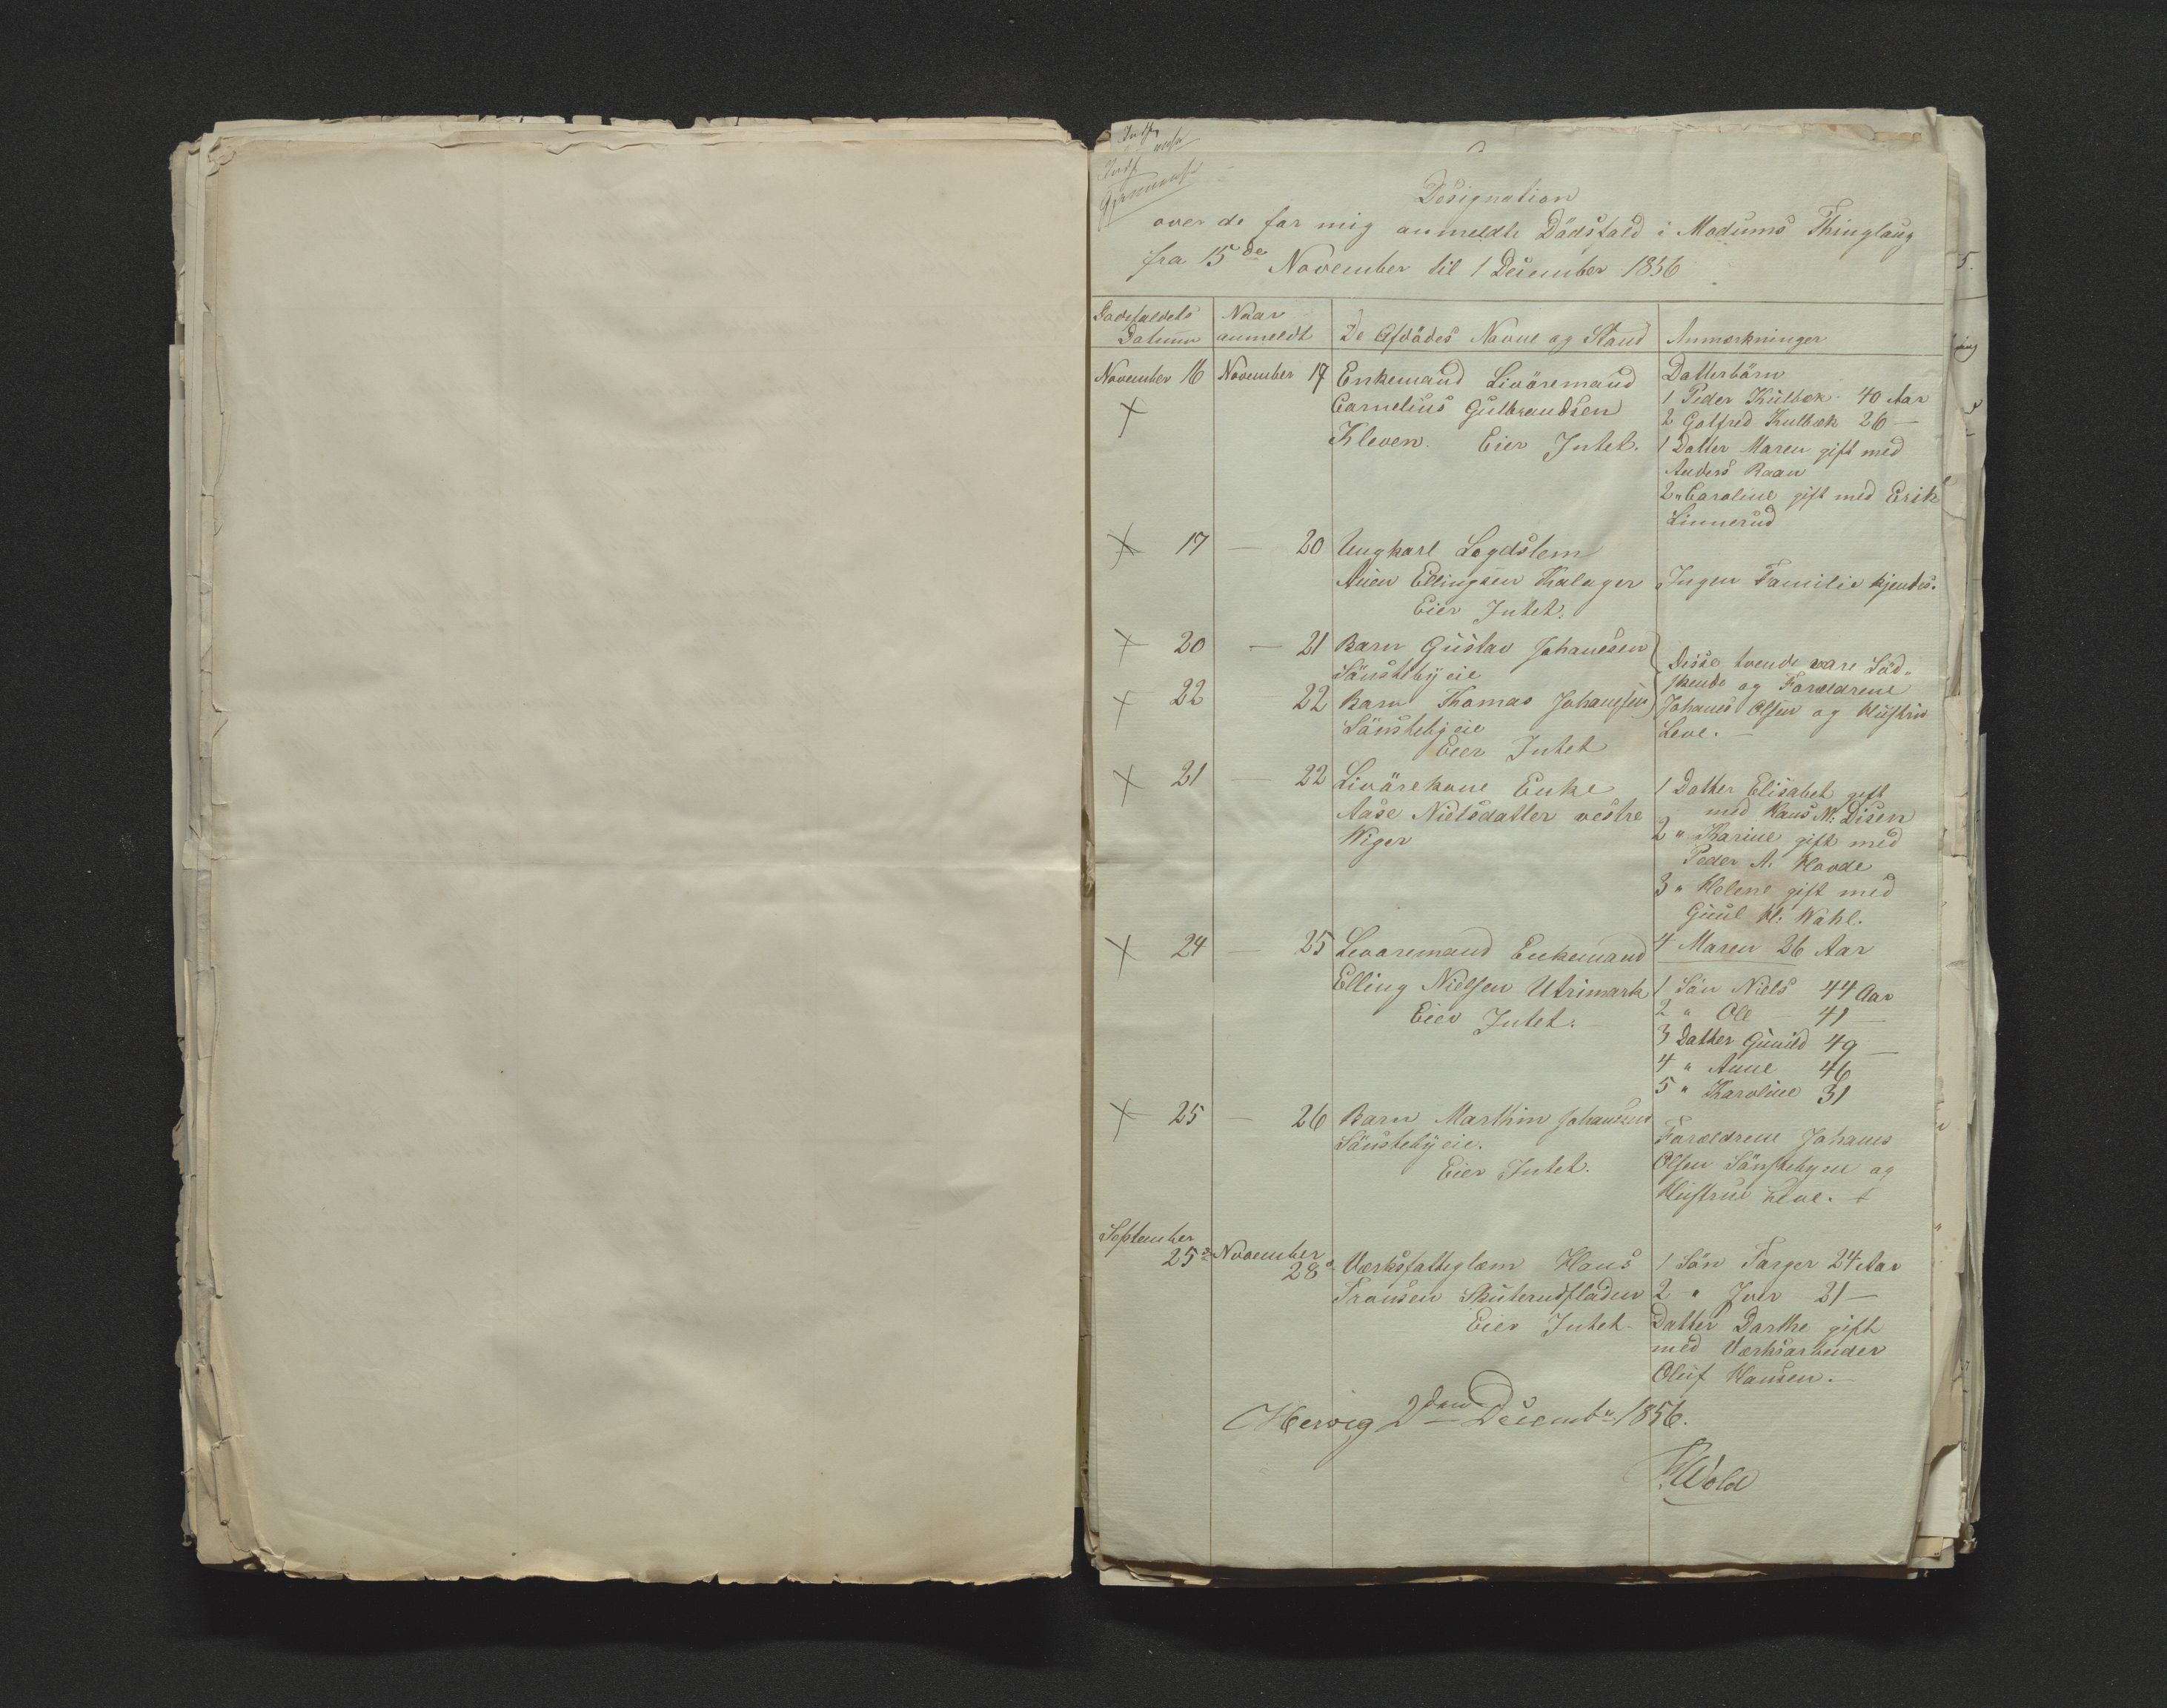 Designation
over de for mig anmeldte Dödsfald i Modums Thinglaug
fra 15de November til 1 December 1856
Dödsfaldets Datum
Naar anmeldt
De Afdödes Navne og Stand
Anmærkninger
November 16
November 17
Enkemand Livöremand
Cornelius Gulbrandsen
Kleven. Eier Intet.
Datterbörn
1 Peder Kulbæk 40 Aar
2 Gotfred Kulbæk 26 —
1 Datter Maren gift med
Anders Raan
2 " Caroline gift med Erik
Linnerud
17 — 20
Ungkarl Lægdslem
Ellingsen
Eier Intet.
Ingen Familie kjendes.
20 — 21
Barn Gustav Johanesen
Sönstebÿ eie
22 22
Barn Thomas Johanesen
Sönstebÿ eie
Eier Intet
Disse tvende vare Söd-
skende og Forældrene
Johanes Olsen og Hustru
Leve. —
21 — 22
Livörekone Enke
Aase Nielsdatter vestre
Wiger
1 Datter Elisabet gift
med Hans N: Disen
2 " Karine gift med
Peder A. Hovde
3 " Helene gift med
Guul H: Wahl.
4 Maren 26 Aar
24 — 25
Levöremand Enkemand
Elling Nielsen Utrimark
Eier Intet. —
1 Sön Niels 44 Aar
2 " Ole 41 —
3 Datter Gunild 49 —
4 " Anne 46
5 " Karoline 31
25 — 26
Barn Marthin Johanesen
Sönstebÿ eie.
Eier Intet.
Forældrene Johanes
Olsen Sönstebyeie og
Hustrue Leve.
September 25
November 28
Værksfattiglem Hans
Fransen Skuterudfladen
Eier Intet.
1 Sön Torger 24 Aar
2 " Iver 21 —
Datter Dorthe gift
med Værksarbeider
Oluf Hansen. —
Hervig 2den Decembr 1856.
Wold